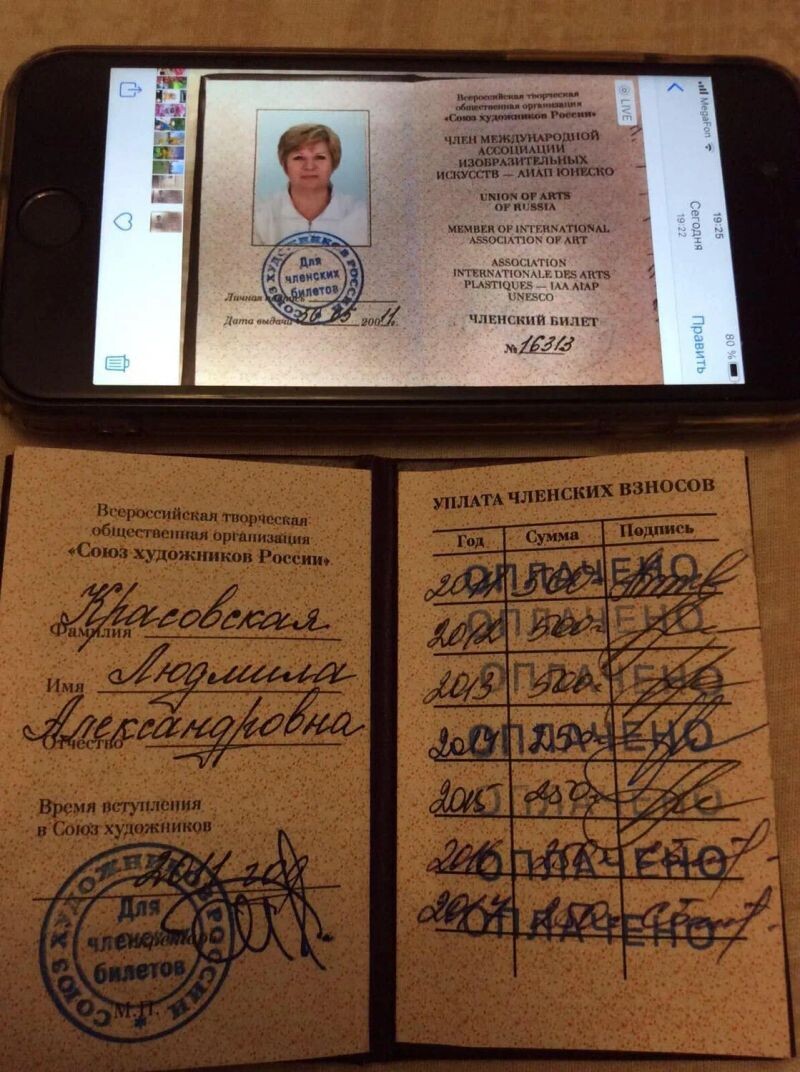 MegaFon
19:25
80 %
Сегодня
19:22
Править
LIVE
Всероссийская творческая
общественная организация
«Союз художников России»
ЧЛЕН МЕЖДУНАРОДНОЙ
АССОЦИАЦИИ
ИЗОБРАЗИТЕЛЬНЫХ
ИСКУССТВ — АИАП ЮНЕСКО
UNION OF ARTS
OF RUSSIA
MEMBER OF INTERNATIONAL
ASSOCIATION OF ART
ASSOCIATION
INTERNATIONALE DES ARTS
PLASTIQUES — IAA AIAP
UNESCO
ЧЛЕНСКИЙ БИЛЕТ
№ 16313
СОЮЗ ХУДОЖНИКОВ РОССИИ
Для
членских
билетов
Личная подпись
Дата выдачи 05 2011г.
Всероссийская творческая
общественная организация
«Союз художников России»
Фамилия Красовская
Имя Людмила
Отчество Александровна
Время вступления
в Союз художников
2011 год
СОЮЗ ХУДОЖНИКОВ РОССИИ
Для
членских
билетов
М.П.
УПЛАТА ЧЛЕНСКИХ ВЗНОСОВ
Год Сумма Подпись
2011 500 ОПЛАЧЕНО
2012 500 ОПЛАЧЕНО
2013 500 ОПЛАЧЕНО
2014 250 ОПЛАЧЕНО
2015 250 ОПЛАЧЕНО
2016 250 ОПЛАЧЕНО
2017 250 ОПЛАЧЕНО